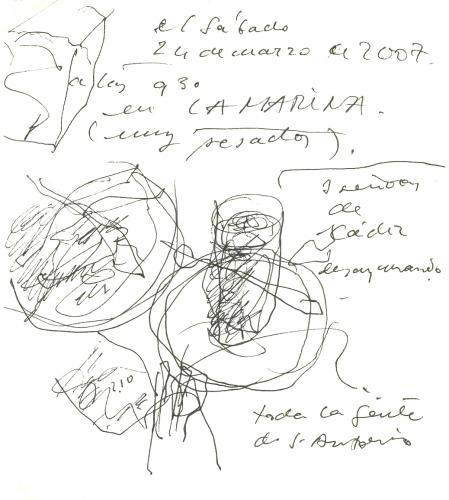 el sábado
24 de marzo de 2007.
a las 930
en LA MARINA.
(muy pesados).
3 señoras
de
Cádiz
desayunando
210
toda la gente
de S. Antonio